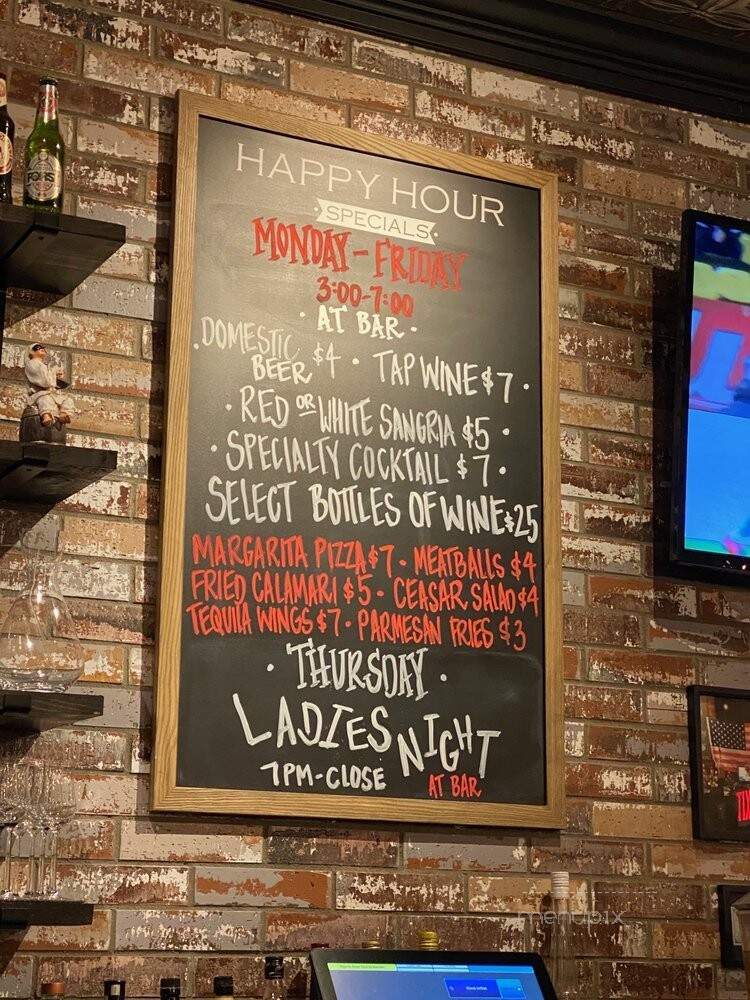 HAPPY HOUR
SPECIALS
MONDAY - FRIDAY
3:00-7:00
· AT BAR ·
· DOMESTIC BEER $4 · TAP WINE $7 ·
· RED OR WHITE SANGRIA $5 ·
· SPECIALTY COCKTAIL $7 ·
SELECT BOTTLES OF WINE $25
MARGARITA PIZZA $7 · MEATBALLS $4
FRIED CALAMARI $5 · CEASAR SALAD $4
TEQUILA WINGS $7 · PARMESAN FRIES $3
· THURSDAY ·
LADIES NIGHT
7PM-CLOSE AT BAR
menupix